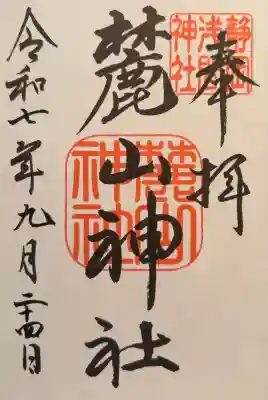 奉拝
静岡浅間神社
麓山神社
麓山神社
令和七年九月二十四日